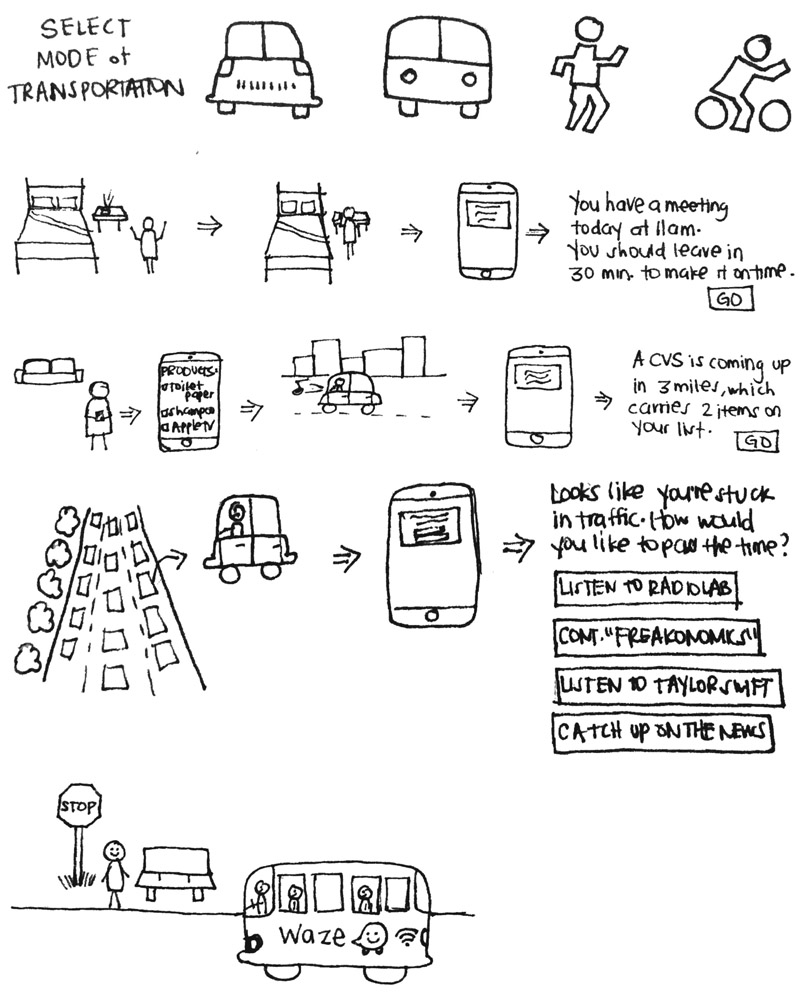 SELECT
MODE of
TRANSPORTATION
You have a meeting
today at 11am.
You should leave in
30 min. to make it on time.
GO
PRODUCTS:
toilet
paper
shampoo
AppleTV
A CVS is coming up
in 3 miles, which
carries 2 items on
your list.
GO
Looks like you're stuck
in traffic. How would
you like to pass the time?
LISTEN TO RADIOLAB
CONT. "FREAKONOMICS"
LISTEN TO TAYLOR SWIFT
CATCH UP ON THE NEWS
STOP
Waze